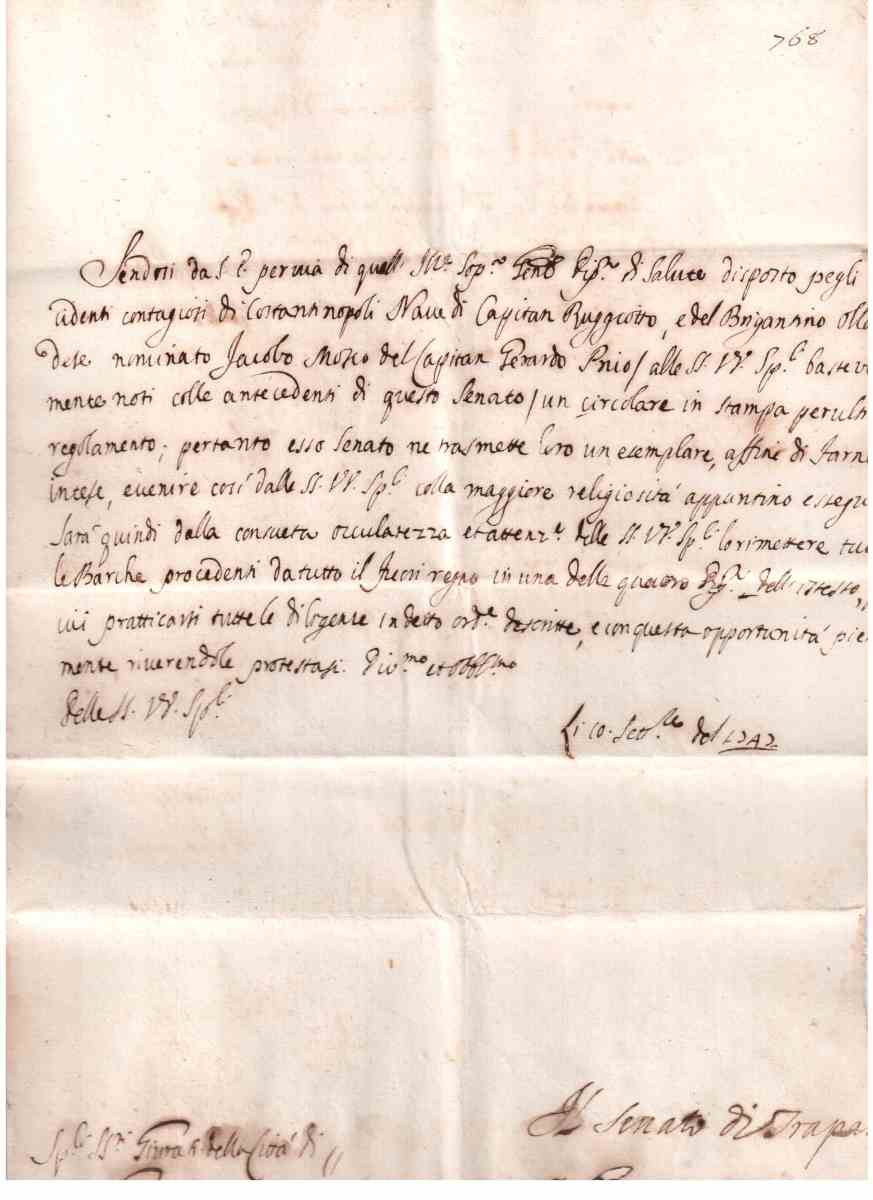 768
Sendosi da S. E. per via di quell Sup.mo Gen.l Dip.ne di Salute disposto pegli
adenti contagiosi di Costantinopoli Nave di Capitan Ruggiotto, e del Brigantino Olla
dese nominato Jacobo del Capitan Gerardo Pnio/ alle SS. VV. Sp.li bastevol
mente noti colle antecedenti di questo Senato/ un circolare in stampa per ult
regolamento; pertanto esso Senato ne trasmette loro un esemplare, affine di starne
intese, e venire così dalle SS. VV. Sp.li colla maggiore religiosità appuntino esegui
Sarà quindi della consueta occulatezza et attenz.e delle SS. VV. Sp.li lo rimettere tu
le Barche procedenti da tutto il fuori regno in una delle quattro dell'istesso,
ivi pratticarsi tutte le diligenze in detto ord.e descritte, e con questa opportunità pie
mente riverendole protestasi. Div.mo et obbl.mo
delle SS. VV. Sp.li
Li 10. Sett.re del 1747
Il Senato di Trapa
Sp.li SS.ri Giurati della Città di